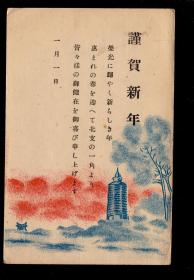 謹賀新年
榮光に輝やく新らしき年
惠まれの春を迎へて北支の一角より
皆々様の御健在を御喜び申し上げます
一月一日